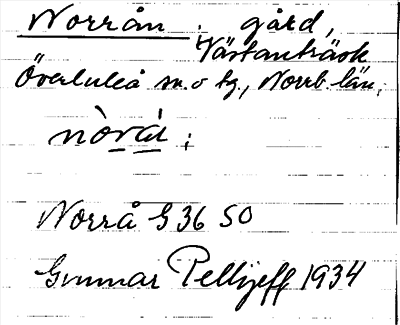 Norrån ; gård,
Västanträsk
Överluleå sn. o tg., Norrb. län;
nòrán ;
Norrå G36 SO
Gunnar Pellijeff 1934